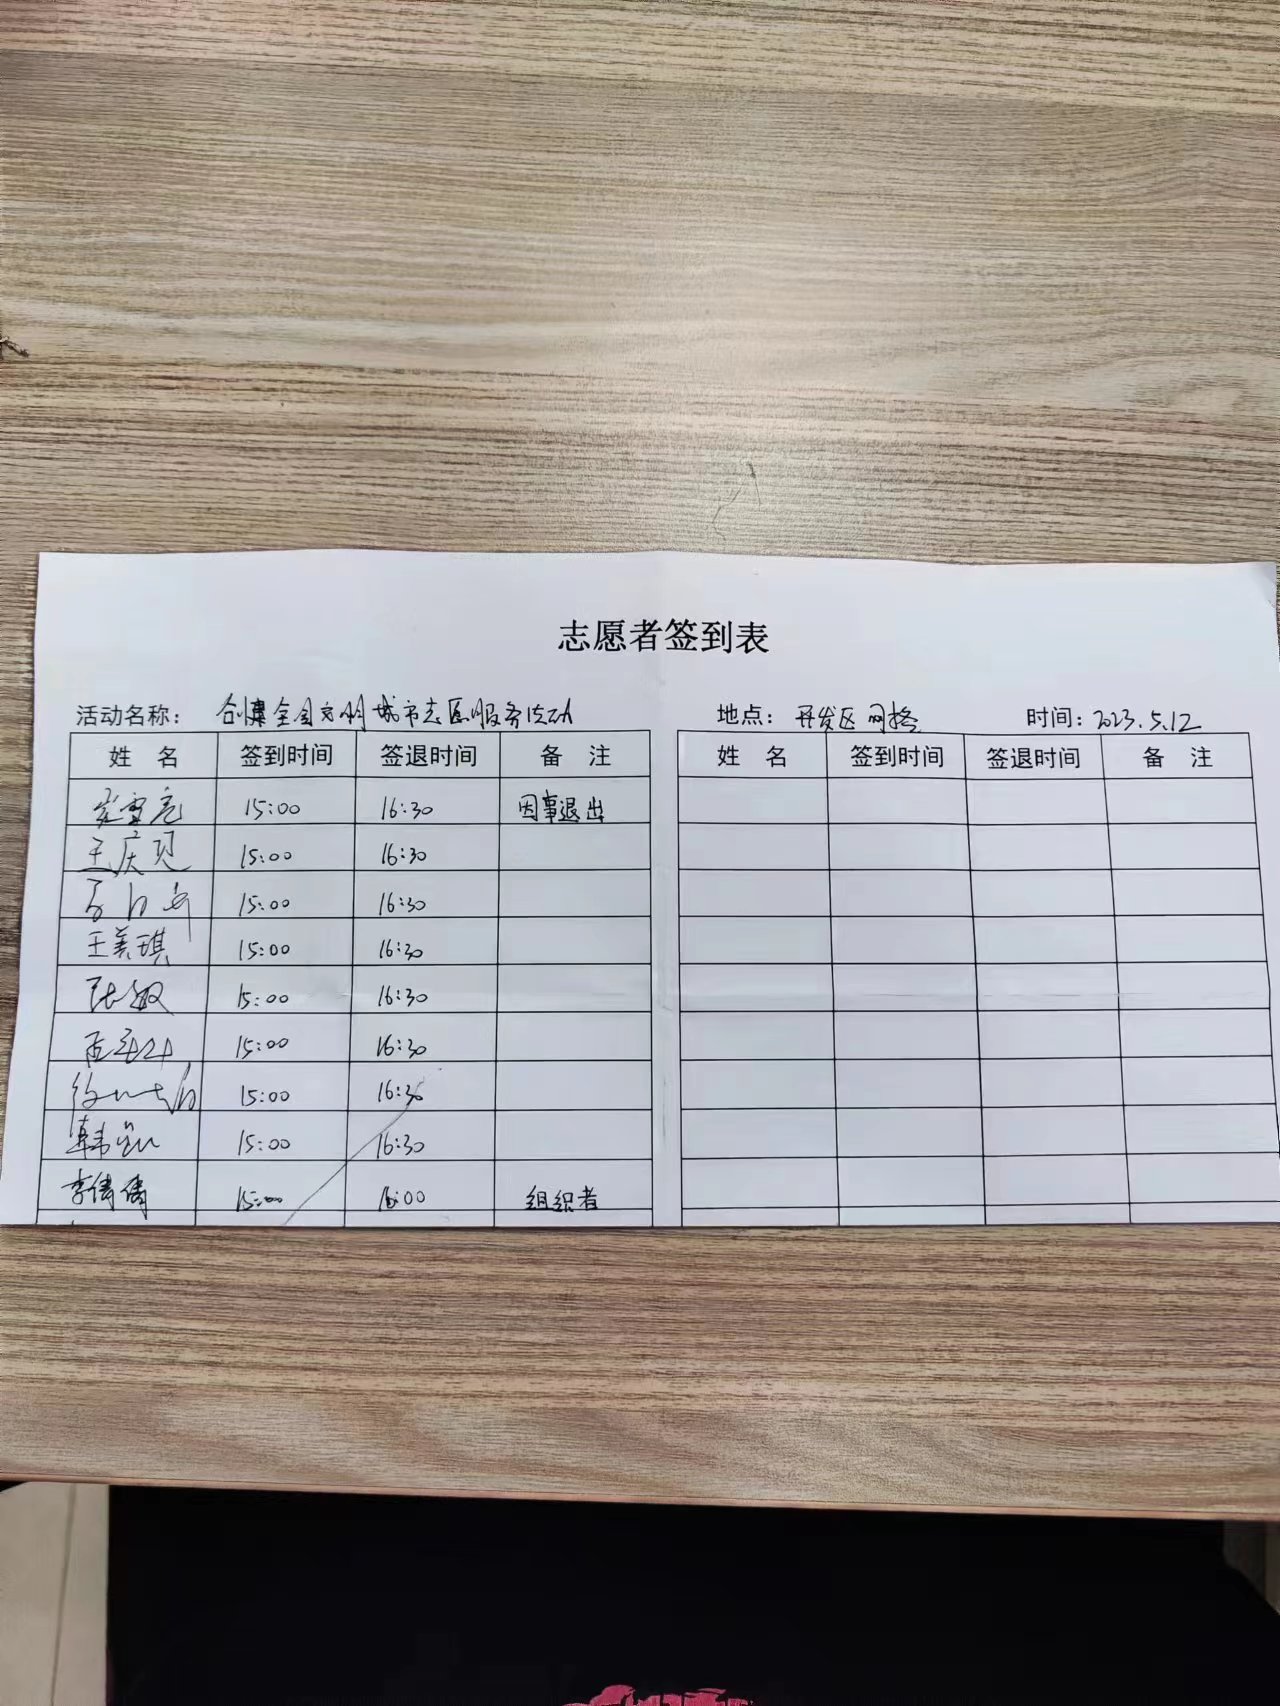 志愿者签到表
活动名称： 创建全国文明城市志愿服务活动 地点： 开发区网格 时间：2023.5.12
姓 名 签到时间 签退时间 备 注 姓 名 签到时间 签退时间 备 注
15:00 16:30 因事退出
15:00 16:30
15:00 16:30
王美琪 15:00 16:30
张敏 15:00 16:30
15:00 16:30
15:00 16:30
韩 15:00 16:30
李倩倩 15:00 16:00 组织者